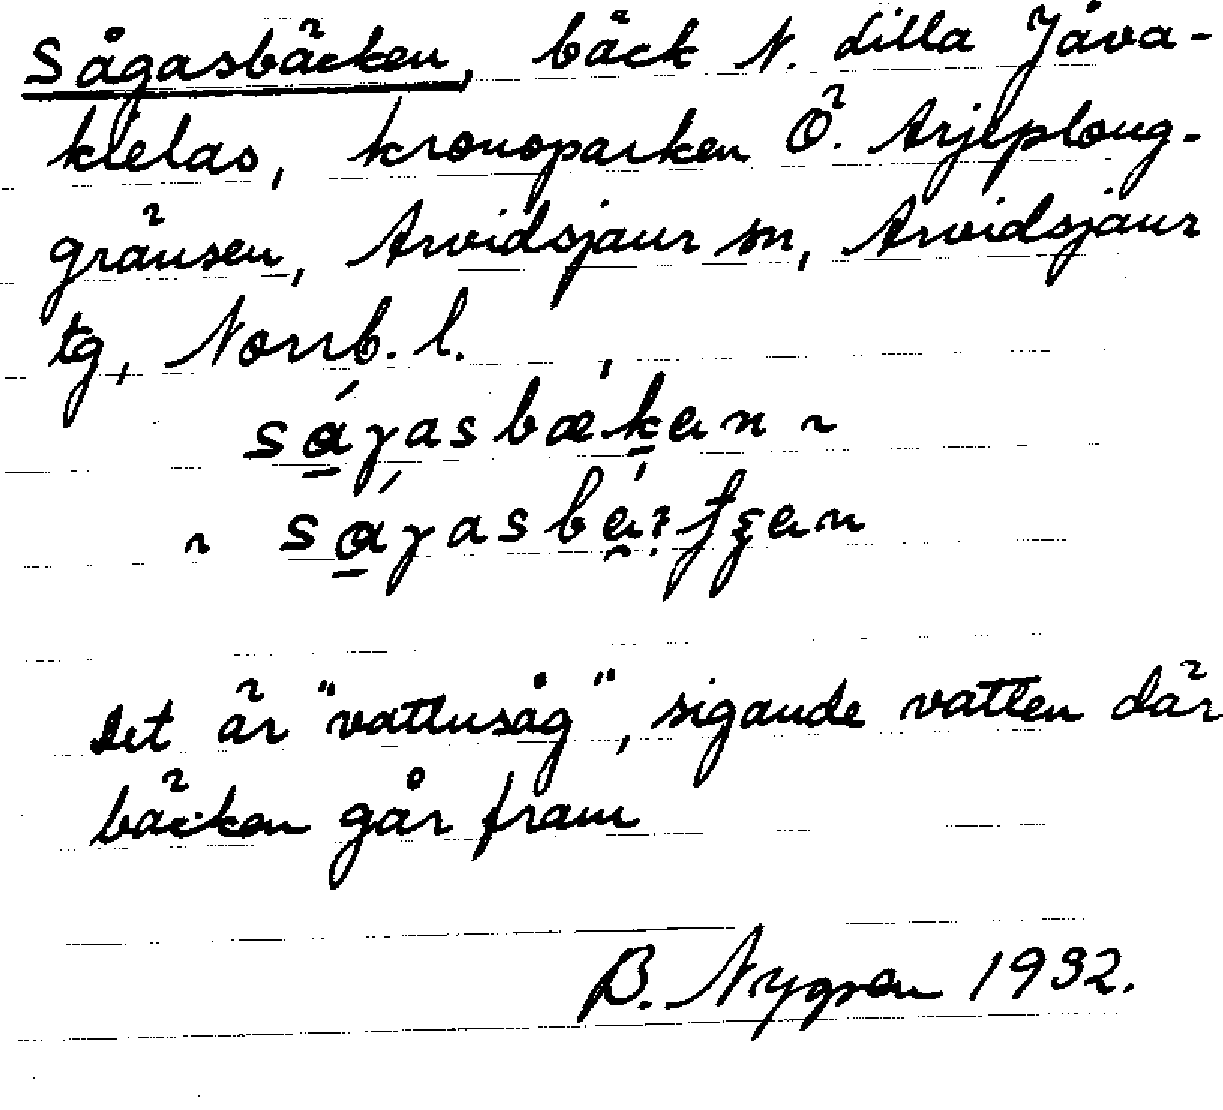 Sågasbäcken, bäck N. Lilla Jåva-
kielas, kronoparken Ö. Arjeploug-
gränsen, Arvidsjaur sn, Arvidsjaur
tg, Norrb. l.
Det är "vattusåg", sigande vatten där
bäcken går fram
B. Nygren 1932.